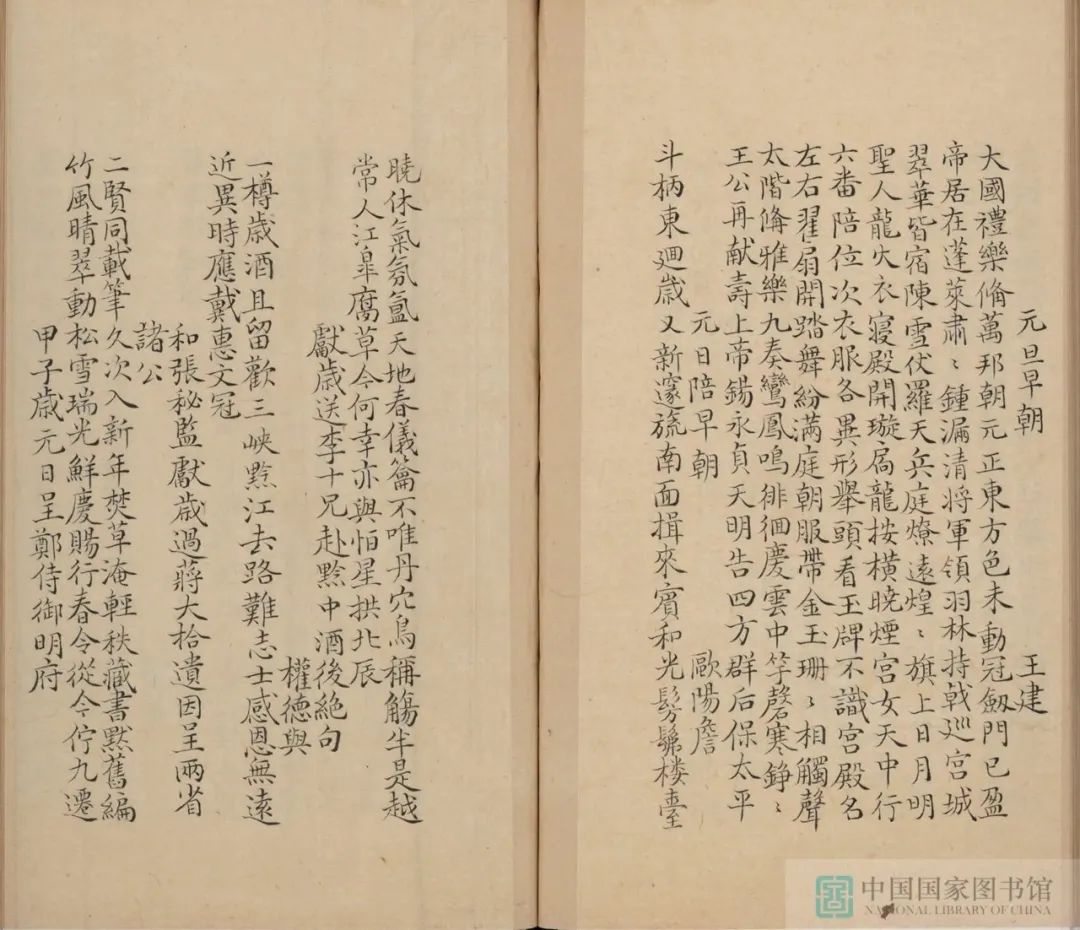 元旦早朝 王建
大國禮樂俻萬邦朝元正東方色未動冠劔門已盈
帝居在蓬萊肅〻鍾漏清將軍領羽林持戟巡宮城
翠華皆宿陳雪伏羅天兵庭燎遠煌〻旗上日月明
聖人龍火衣寢殿開璇扃龍按橫晓煙宮女天中行
六番陪位次衣服各異形舉頭看玉牌不識宮殿名
左右翟扇開踏舞紛滿庭朝服帶金玉珊〻相觸聲
太階俻雅樂九奏鸞鳳鳴徘徊慶雲中竽磬寒錚〻
王公再献壽上帝錫永貞天明告四方群后保太平
元日陪早朝 歐陽詹
斗柄東廻歲又新邃旒南面揖來賓和光髣髴楼臺
曉休氣氛氳天地春儀籥不唯丹穴鳥稱觴半是越
常人江皐腐草今何幸亦與怕星拱北辰
獻歲送李十兄赴黔中酒後絶句
權德與
一樽歲酒且留歡三峽黔江去路難志士感恩無遠
近異時應戴惠文冠
和張秘監獻歲過蔣大拾遺因呈兩省
諸公
二賢同載筆久次入新年焚草淹輕秩藏書黙舊編
竹風晴翠動松雪瑞光鮮慶賜行春令從今佇九遷
甲子歲元日呈鄭侍御明府
中国国家图书馆
NATIONAL LIBRARY OF CHINA